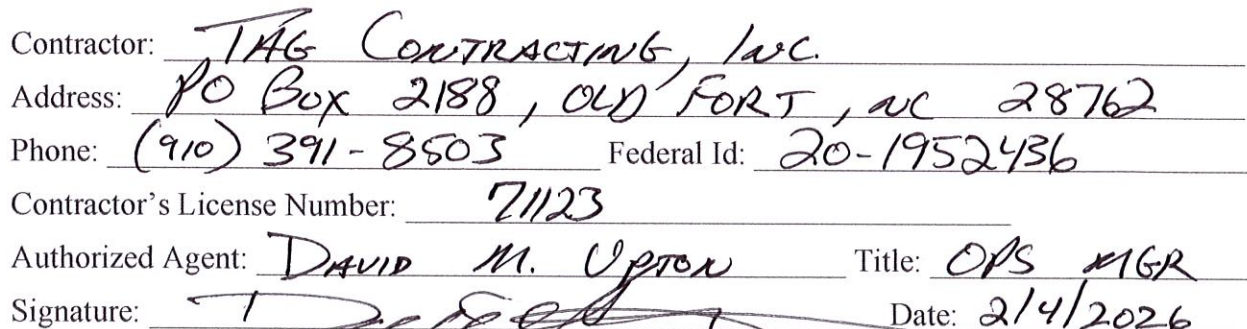 Contractor: TAG CONTRACTING, INC.
Address: PO BOX 2188, OLD FORT, NC 28762
Phone: (910) 391-8503 Federal Id: 20-1952436
Contractor's License Number: 71123
Authorized Agent: DAVID M. UPTON Title: OPS MGR
Signature: Date: 2/4/2026